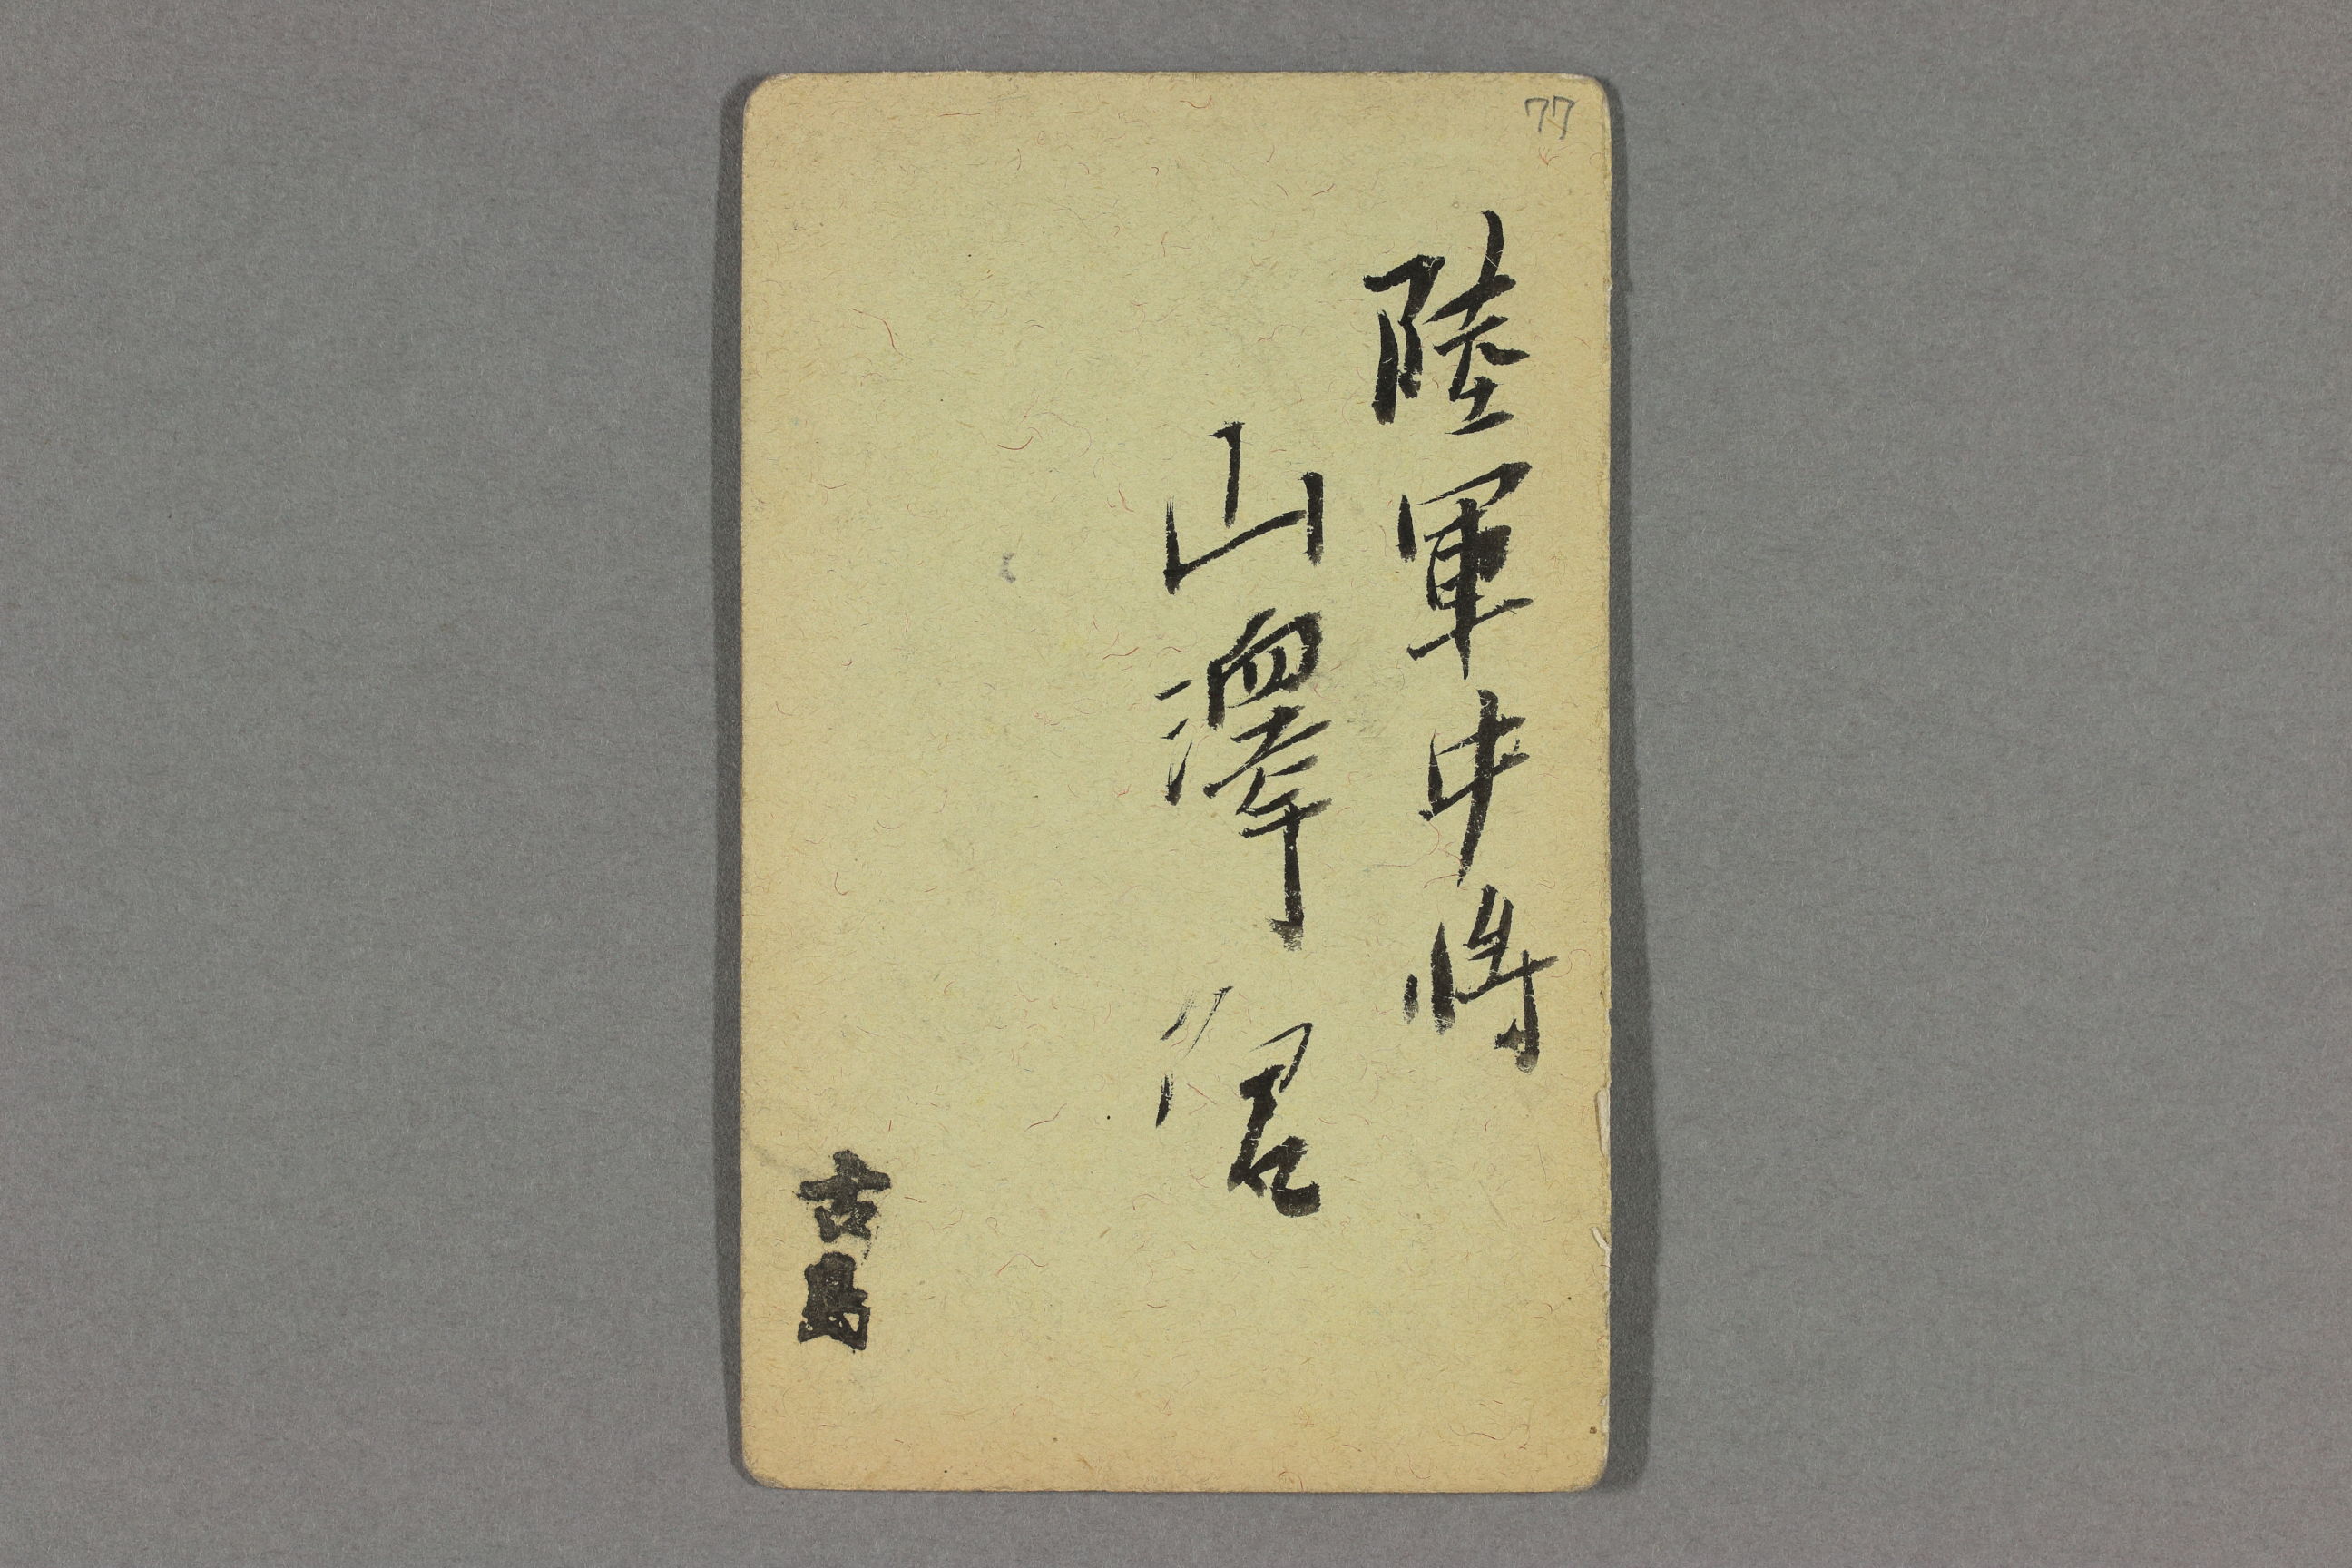 77
陸軍中將
山澤君
古島